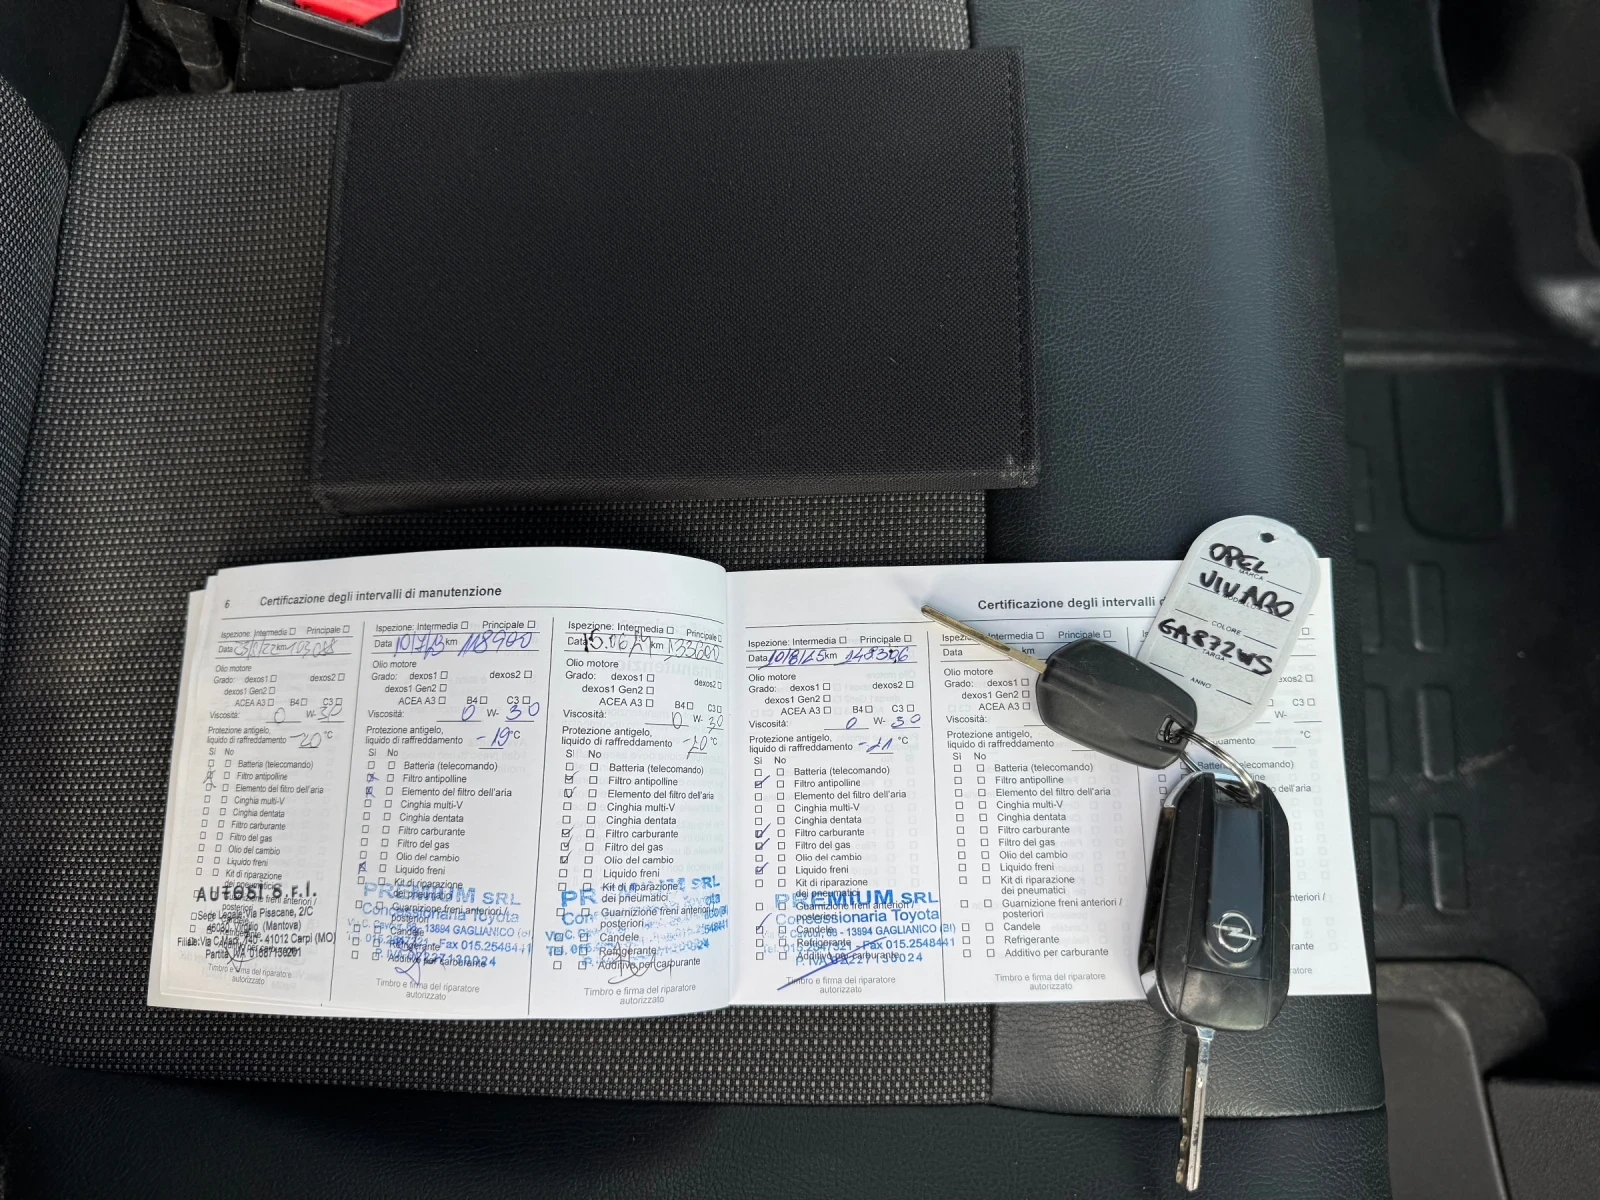 6
Certificazione degli intervalli di manutenzione
Ispezione: Intermedia Principale
Data km 103
Olio motore
Grado: dexos1 dexos2
dexos1 Gen2
ACEA A3 B4 C3
Viscosità: 0 W- 30
Protezione antigelo,
liquido di raffreddamento -20 °C
Sì No
Batteria (telecomando)
Filtro antipolline
Elemento del filtro dell'aria
Cinghia multi-V
Cinghia dentata
Filtro carburante
Filtro del gas
Olio del cambio
Liquido freni
Kit di riparazione
dei pneumatici
AUTOSI S.r.l.
Sede Legale: Via Pisacane, 2/C
Virgilio (Mantova)
41012 Carpi (MO)
Timbro e firma del riparatore
autorizzato
Ispezione: Intermedia Principale
Data 10/7/23 km 118900
Olio motore
Grado: dexos1 dexos2
dexos1 Gen2
ACEA A3 B4 C3
Viscosità: 0 W- 30
Protezione antigelo,
liquido di raffreddamento -19 °C
Sì No
Batteria (telecomando)
Filtro antipolline
Elemento del filtro dell'aria
Cinghia multi-V
Cinghia dentata
Filtro carburante
Filtro del gas
Olio del cambio
Liquido freni
Kit di riparazione
dei pneumatici
PREMIUM SRL
Guarnizione freni anteriori /
posteriori
Concessionaria Toyota
13894 GAGLIANICO (BI)
Candele
Fax 015.2548441
Refrigerante
Additivo per carburante
Timbro e firma del riparatore
autorizzato
Ispezione: Intermedia Principale
Data 15.06 km 133600
Olio motore
Grado: dexos1 dexos2
dexos1 Gen2
ACEA A3 B4 C3
Viscosità: 0 W- 30
Protezione antigelo,
liquido di raffreddamento -20 °C
Sì No
Batteria (telecomando)
Filtro antipolline
Elemento del filtro dell'aria
Cinghia multi-V
Cinghia dentata
Filtro carburante
Filtro del gas
Olio del cambio
Liquido freni
Kit di riparazione
dei pneumatici
SRL
Guarnizione freni anteriori /
posteriori
Candele
Refrigerante
Additivo per carburante
Timbro e firma del riparatore
autorizzato
Certificazione degli intervalli
Ispezione: Intermedia Principale
Data 10/8/25 km
Olio motore
Grado: dexos1 dexos2
dexos1 Gen2
ACEA A3 B4 C3
Viscosità: 0 W- 30
Protezione antigelo,
liquido di raffreddamento -21 °C
Sì No
Batteria (telecomando)
Filtro antipolline
Elemento del filtro dell'aria
Cinghia multi-V
Cinghia dentata
Filtro carburante
Filtro del gas
Olio del cambio
Liquido freni
Kit di riparazione
dei pneumatici
PREMIUM SRL
Guarnizione freni anteriori /
posteriori
Concessionaria Toyota
Candele
13894 GAGLIANICO (BI)
Refrigerante
Fax 015.2548441
Additivo per carburante
Timbro e firma del riparatore
autorizzato
Intermedia Principale
Data km
Olio motore
Grado: dexos1
dexos1 Gen2
ACEA A3
Viscosità:
Protezione antigelo,
liquido di raffreddamento
Sì No
Batteria (telecomando)
Filtro antipolline
Elemento del filtro dell'aria
Cinghia multi-V
Cinghia dentata
Filtro carburante
Filtro del gas
Olio del cambio
Liquido freni
Kit di riparazione
dei pneumatici
Guarnizione freni anteriori /
posteriori
Candele
Refrigerante
Additivo per carburante
Timbro e firma del riparatore
autorizzato
C3
W-
°C
OPEL
MARCA
VIVARO
COLORE
GA872WS
TARGA
ANNO